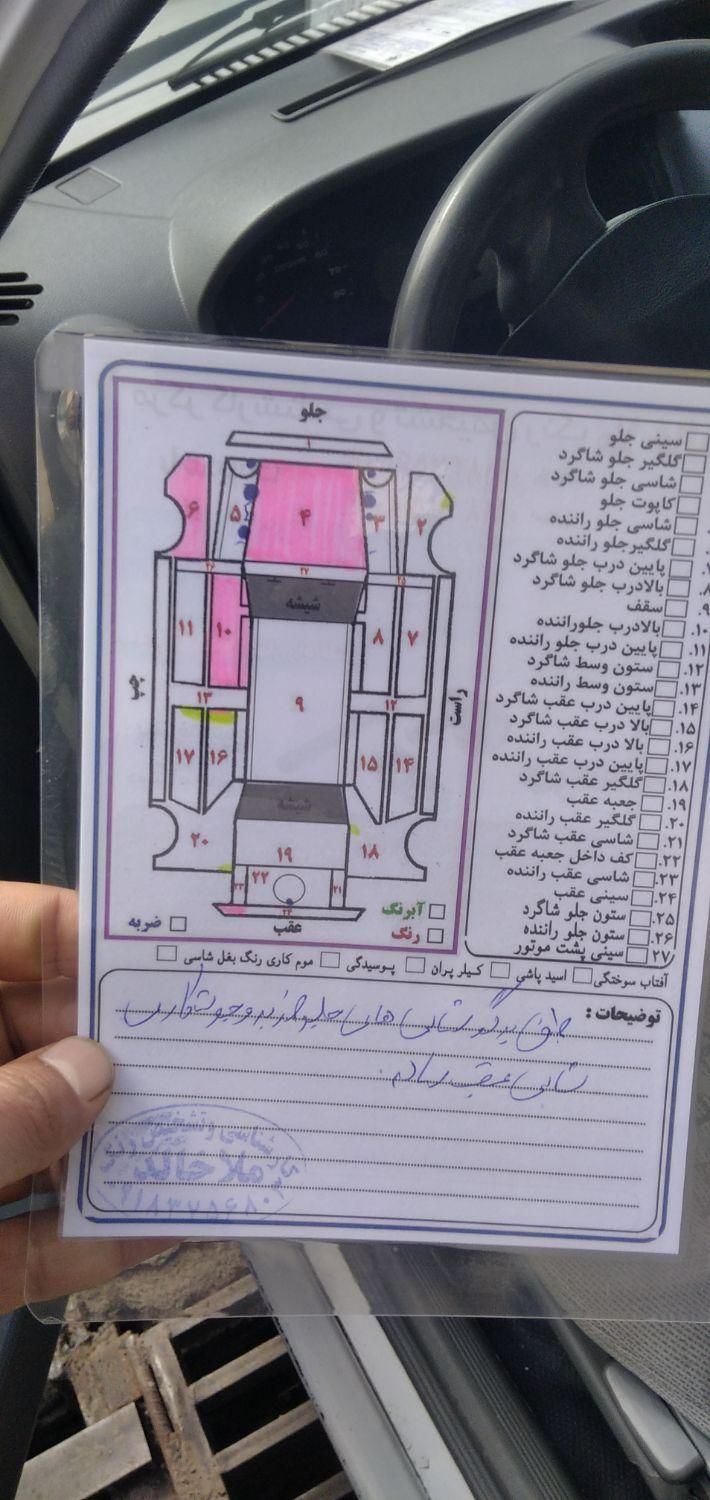 جلو
۱
۶
۵
۴
۳
۲
۲۶
۲۷
۲۵
شیشه
۱۱
۱۰
۸
۷
چپ
راست
۹
۱۳
۱۲
۱۷
۱۶
۱۵
۱۴
شیشه
۲۰
۱۹
۱۸
۲۳
۲۲
۲۱
۲۴
عقب
آبرنگ
رنگ
ضربه
سینی جلو
گلگیر جلو شاگرد
شاسی جلو شاگرد
کاپوت جلو
شاسی جلو راننده
گلگیرجلو راننده
پایین درب جلو شاگرد
۸. بالادرب جلو شاگرد
۹. سقف
۱۰. بالادرب جلوراننده
۱۱. پایین درب جلو راننده
۱۲. ستون وسط شاگرد
۱۳. ستون وسط راننده
۱۴. پایین درب عقب شاگرد
۱۵. بالا درب عقب شاگرد
۱۶. بالا درب عقب راننده
۱۷. پایین درب عقب راننده
۱۸. گلگیر عقب شاگرد
۱۹. جعبه عقب
۲۰. گلگیر عقب راننده
۲۱. شاسی عقب شاگرد
۲۲. کف داخل جعبه عقب
۲۳. شاسی عقب راننده
۲۴. سینی عقب
۲۵. ستون جلو شاگرد
۲۶. ستون جلو راننده
۲۷. سینی پشت موتور
آفتاب سوختگی اسید پاشی کیلر پران پوسیدگی موم کاری رنگ بغل شاسی
توضیحات :
شاسی عقب سالم